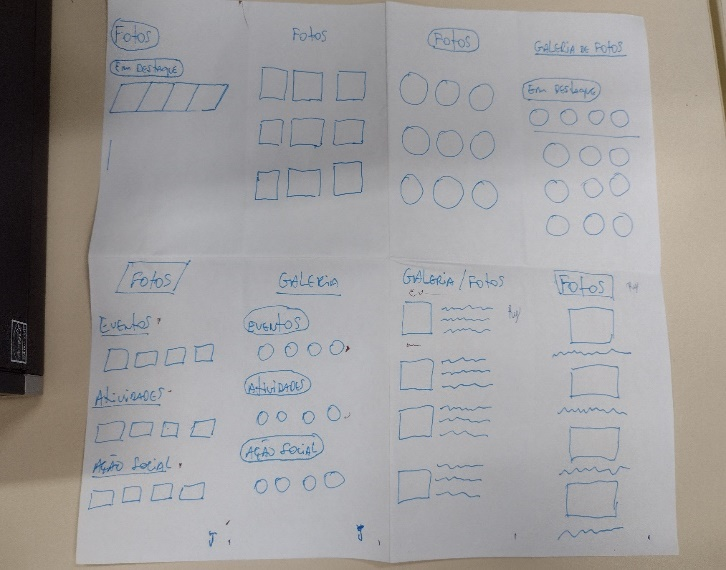 Fotos
Em DESTAQUE
Fotos
Fotos
GALERIA DE FOTOS
Em DESTAQUE
FOTOS
EVENTOS
AtiviDADES
AÇÃO SOCIAL
GALERIA
EVENTOS
AtiviDADES
AÇÃO SOCIAL
GALERIA/FOTOS
FOTOS